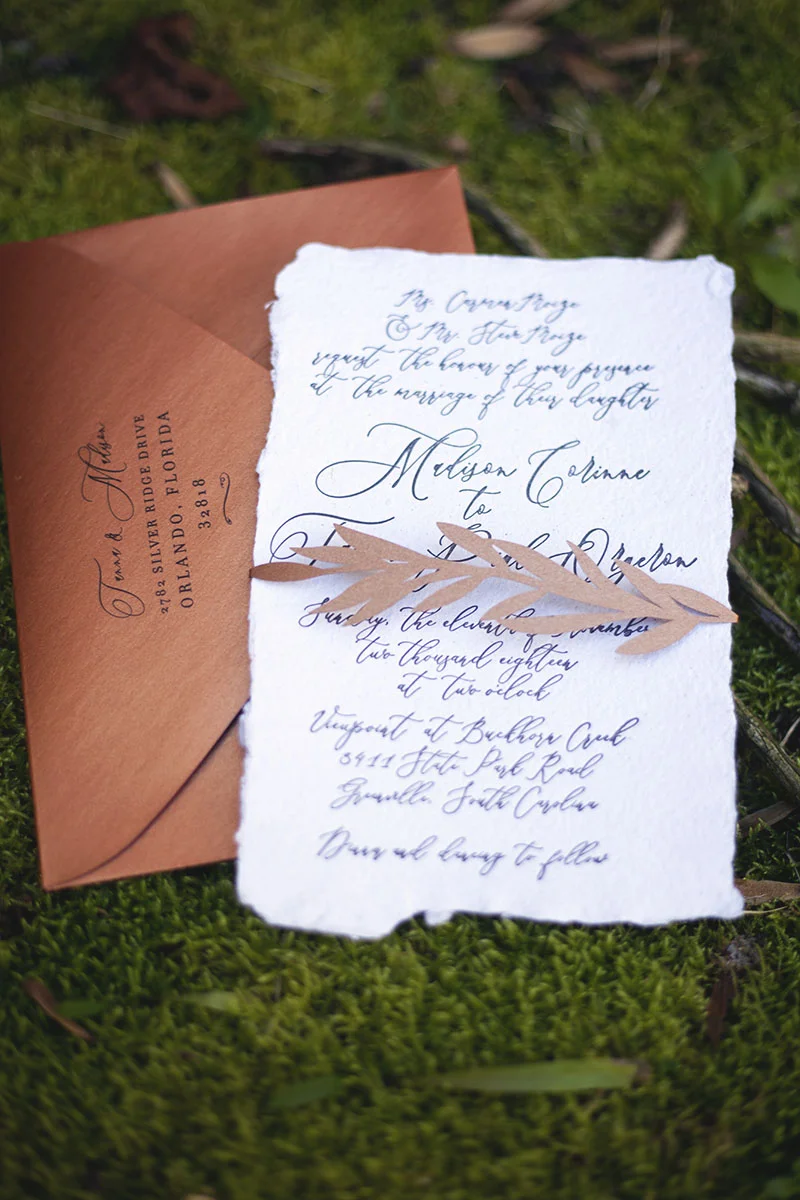 Jenna & Melson
2782 SILVER RIDGE DRIVE
ORLANDO, FLORIDA
32818
Ms. Carmen Moize
& Mr. Steve Moize
request the honour of your presence
at the marriage of their daughter
Madison Corinne
to
Orgeron
Sunday, the eleventh of November
two thousand eighteen
at two o'clock
Viewpoint at Buckhorn Creek
3411 State Park Road
Greenville, South Carolina
Dinner and dancing to follow